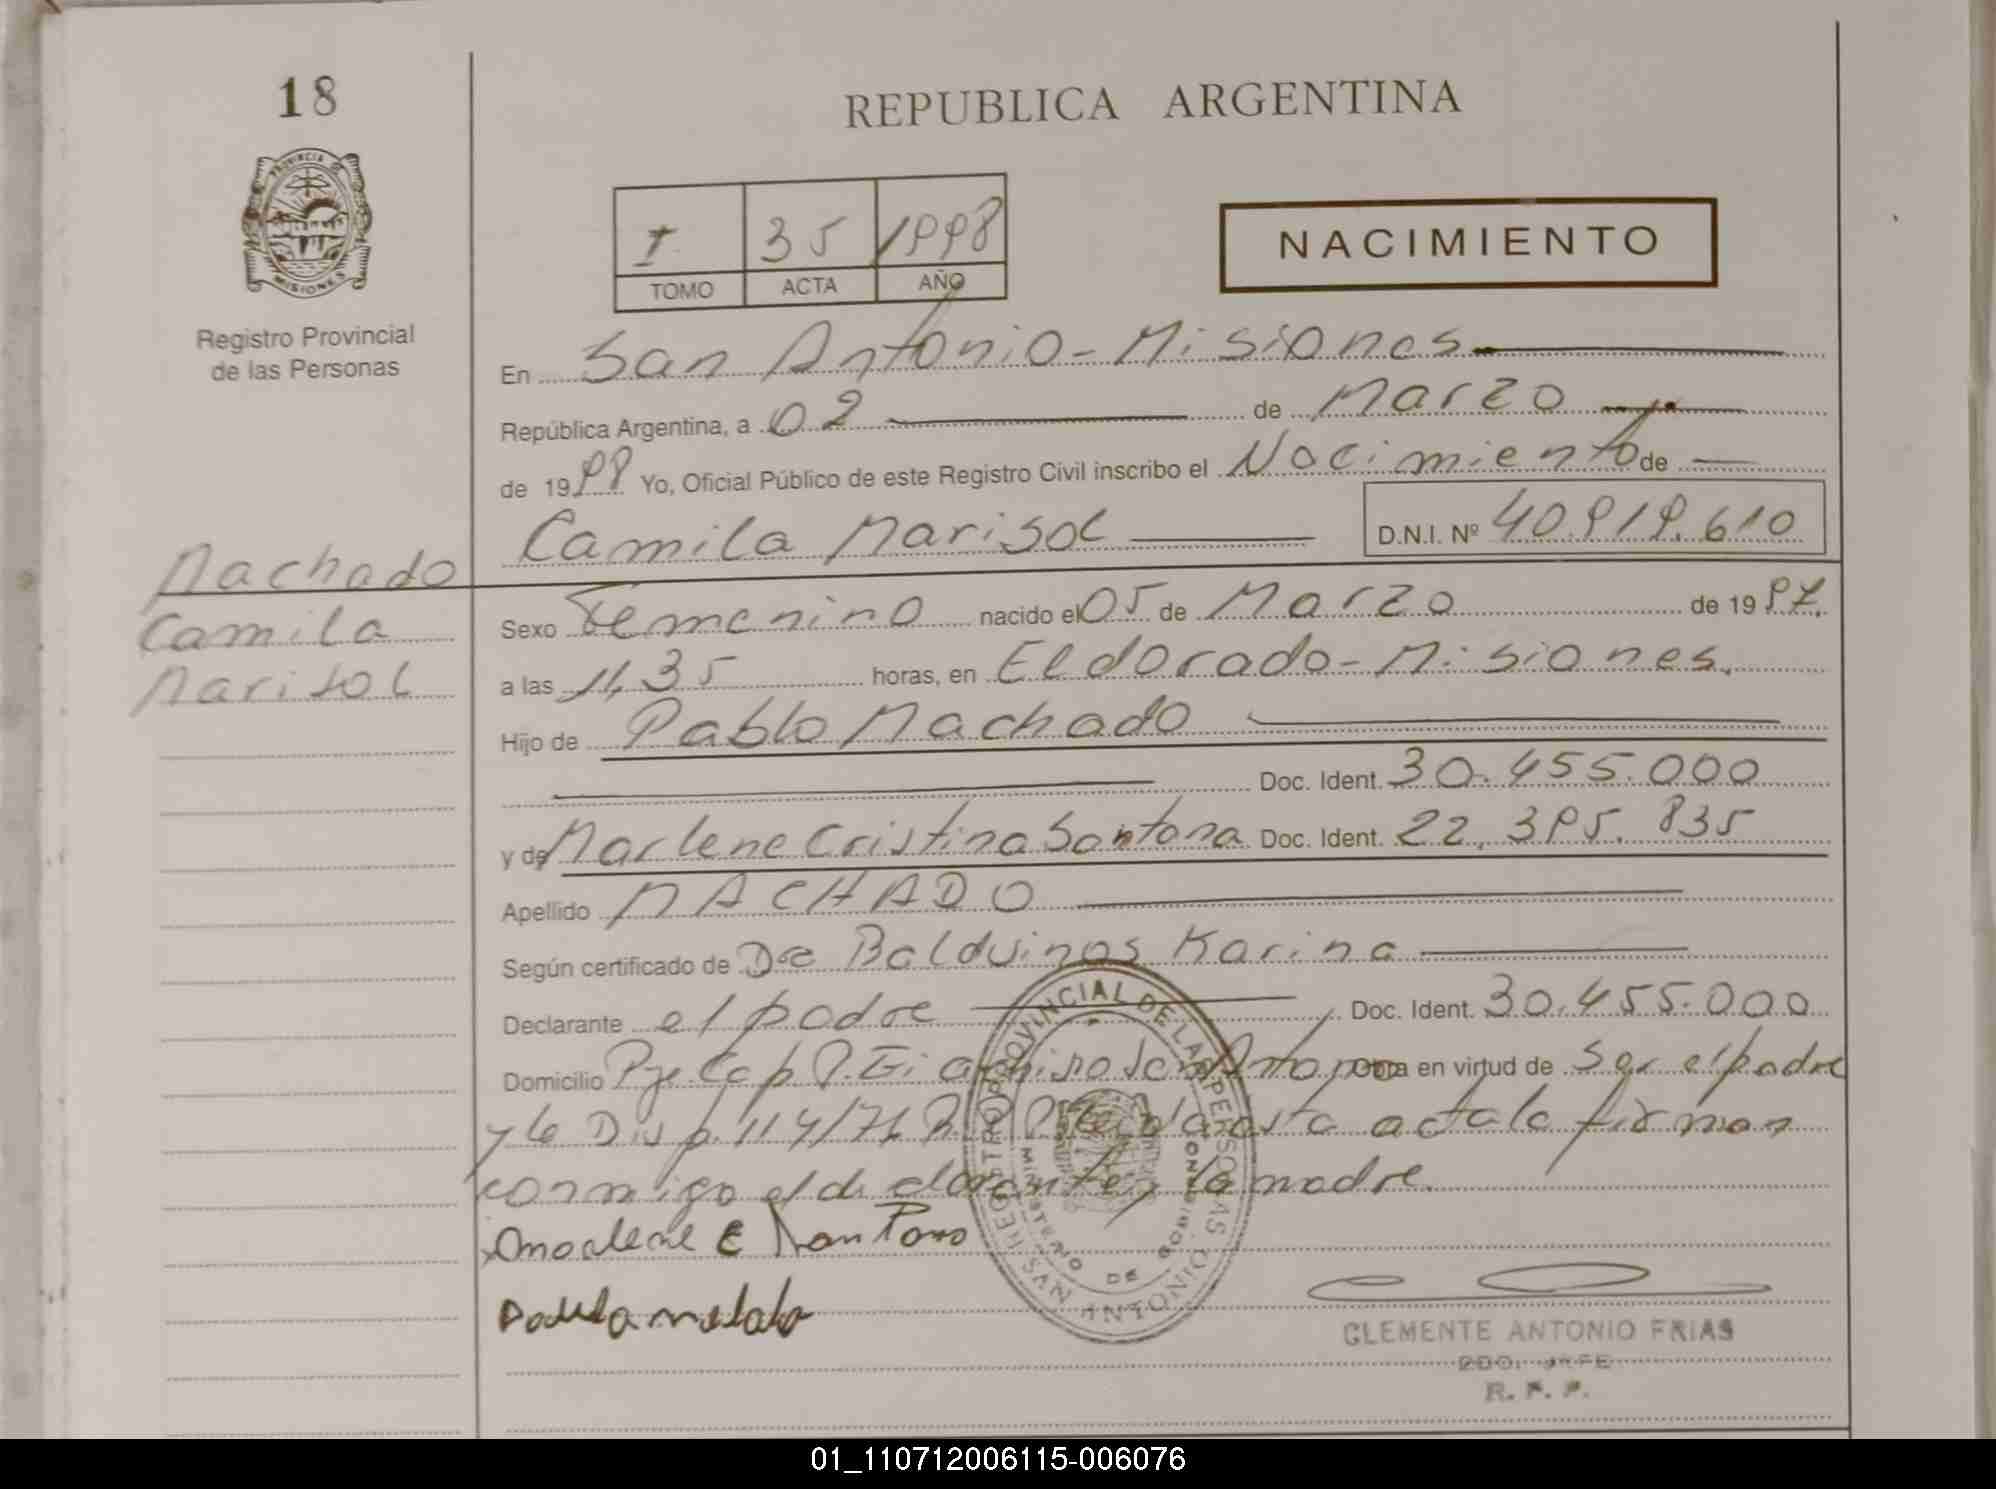 18
REPUBLICA ARGENTINA
PROVINCIA DE
MISIONES
Registro Provincial
de las Personas
I 35 1998
TOMO ACTA AÑO
NACIMIENTO
En San Antonio - Misiones
República Argentina, a 02 de Marzo
de 1998 Yo, Oficial Público de este Registro Civil inscribo el Nacimiento de
Camila Marisol D.N.I. Nº 40.919.610
Machado
Camila
Marisol
Sexo Femenino nacido el 05 de Marzo de 1997.
a las 11,35 horas, en Eldorado - Misiones.
Hijo de Pablo Machado
Doc. Ident. 30.455.000
y de Marlene Cristina Santana Doc. Ident. 22.395.835
Apellido MACHADO
Según certificado de Dra Balduinos Karina
Declarante el padre Doc. Ident. 30.455.000
Domicilio Pje Cap P. Giachino San Antonio Obra en virtud de Ser el padre
y la Disp. 114/71 acta la firman
conmigo el declarante y la madre.
REGISTRO PROVINCIAL DE LAS PERSONAS
MINISTERIO DE GOBIERNO
SAN ANTONIO
CLEMENTE ANTONIO FRIAS
2DO. JEFE
R. P. P.
01_110712006115-006076